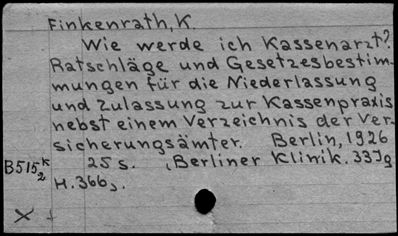 Finkenrath, K
Wie werde ich Kassenarzt?
Ratschläge und Gesetzesbestim-
mungen für die Niederlassung
und Zulassung zur Kassenpraxis
nebst einem Verzeichnis der Ver-
sicherungsämter. Berlin, 1926
B515 K/2 25 s. (Berliner Klinik. 33Jg
H. 366).
X